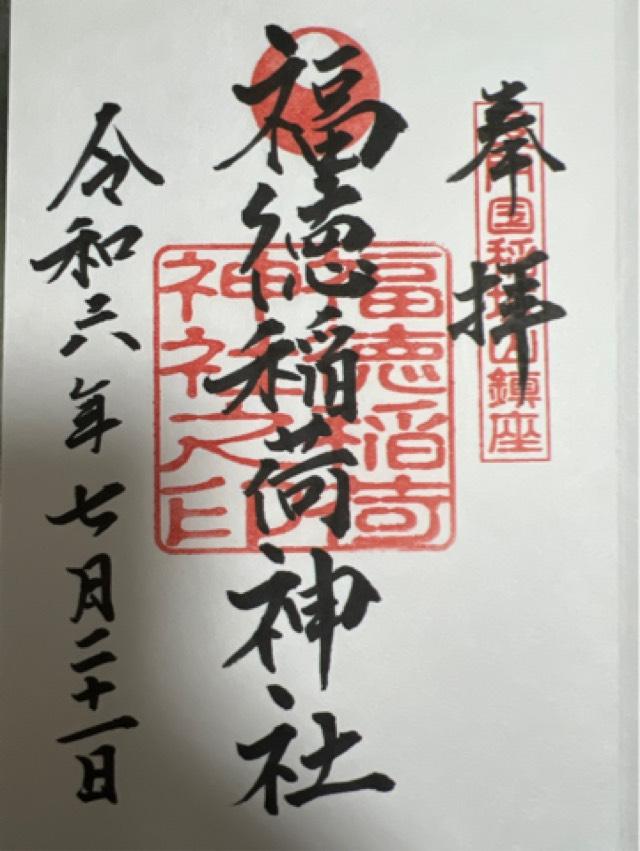 奉拝
国
山鎮座
福徳稲荷神社
福徳稲荷
神社之印
令和六年七月二十一日